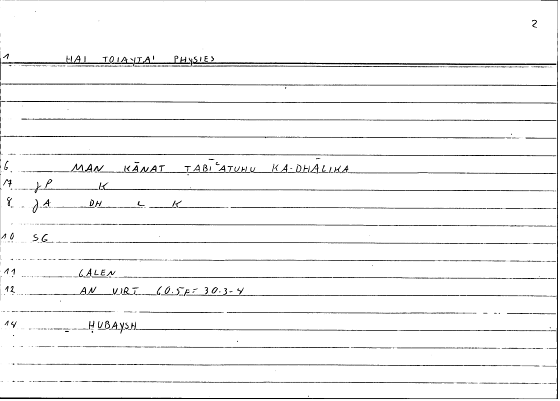 2
1 HAI TOIAYTAI PHYSIES
6 MAN KĀNAT TABĪʿATUHU KA-DHĀLIKA
17 JP K
8 JA DH L K
10 SG
11 GALEN
12 AN VIRT 60.5F= 30.3-4
14 ḤUBAYSH